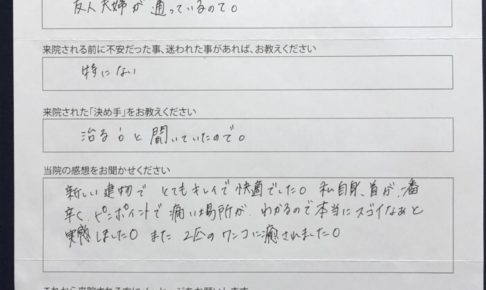 友人夫婦が通っているので。
来院される前に不安だった事、迷われた事があれば、お教えください
特にない
来院された「決め手」をお教えください
治るよと聞いていたので。
当院の感想をお聞かせください
新しい建物でとてもキレイで快適でした。私自身、首が一番
辛く、ピンポイントで痛い場所がわかるので本当にスゴイなぁと
実感しました。また2匹のワンコに癒されました。